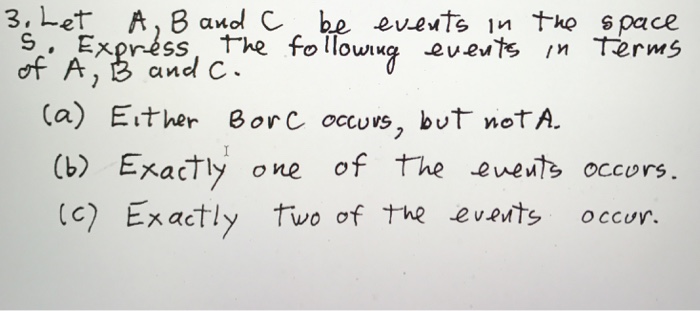 3. Let A, B and C be events in the space
S. Express the following events in terms
of A, B and C.
(a) Either B or C occurs, but not A.
(b) Exactly one of the events occurs.
(c) Exactly two of the events occur.